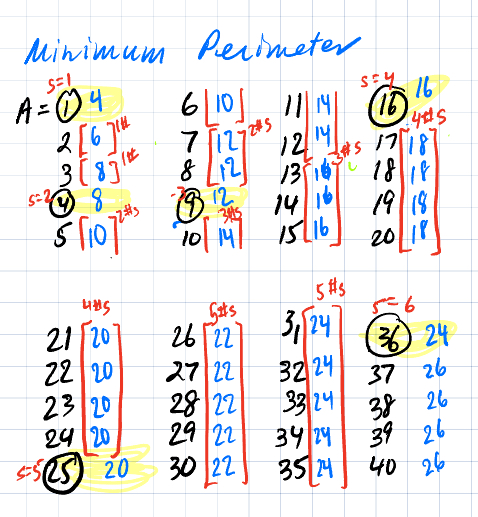 Minimum Perimeter
s=1 s=4
A = 1 4 6 10 11 14 16 16
1# 2#s 4#s
2 6 7 12 12 14 17 18
1# 3#s
3 8 8 12 13 16 18 18
s=2 =3
4 8 9 12 14 16 19 18
2#s 3#s
5 10 10 14 15 16 20 18
4#s 5#s 5#s s=6
21 20 26 22 31 24 36 24
22 20 27 22 32 24 37 26
23 20 28 22 33 24 38 26
24 20 29 22 34 24 39 26
s=5 25 20 30 22 35 24 40 26